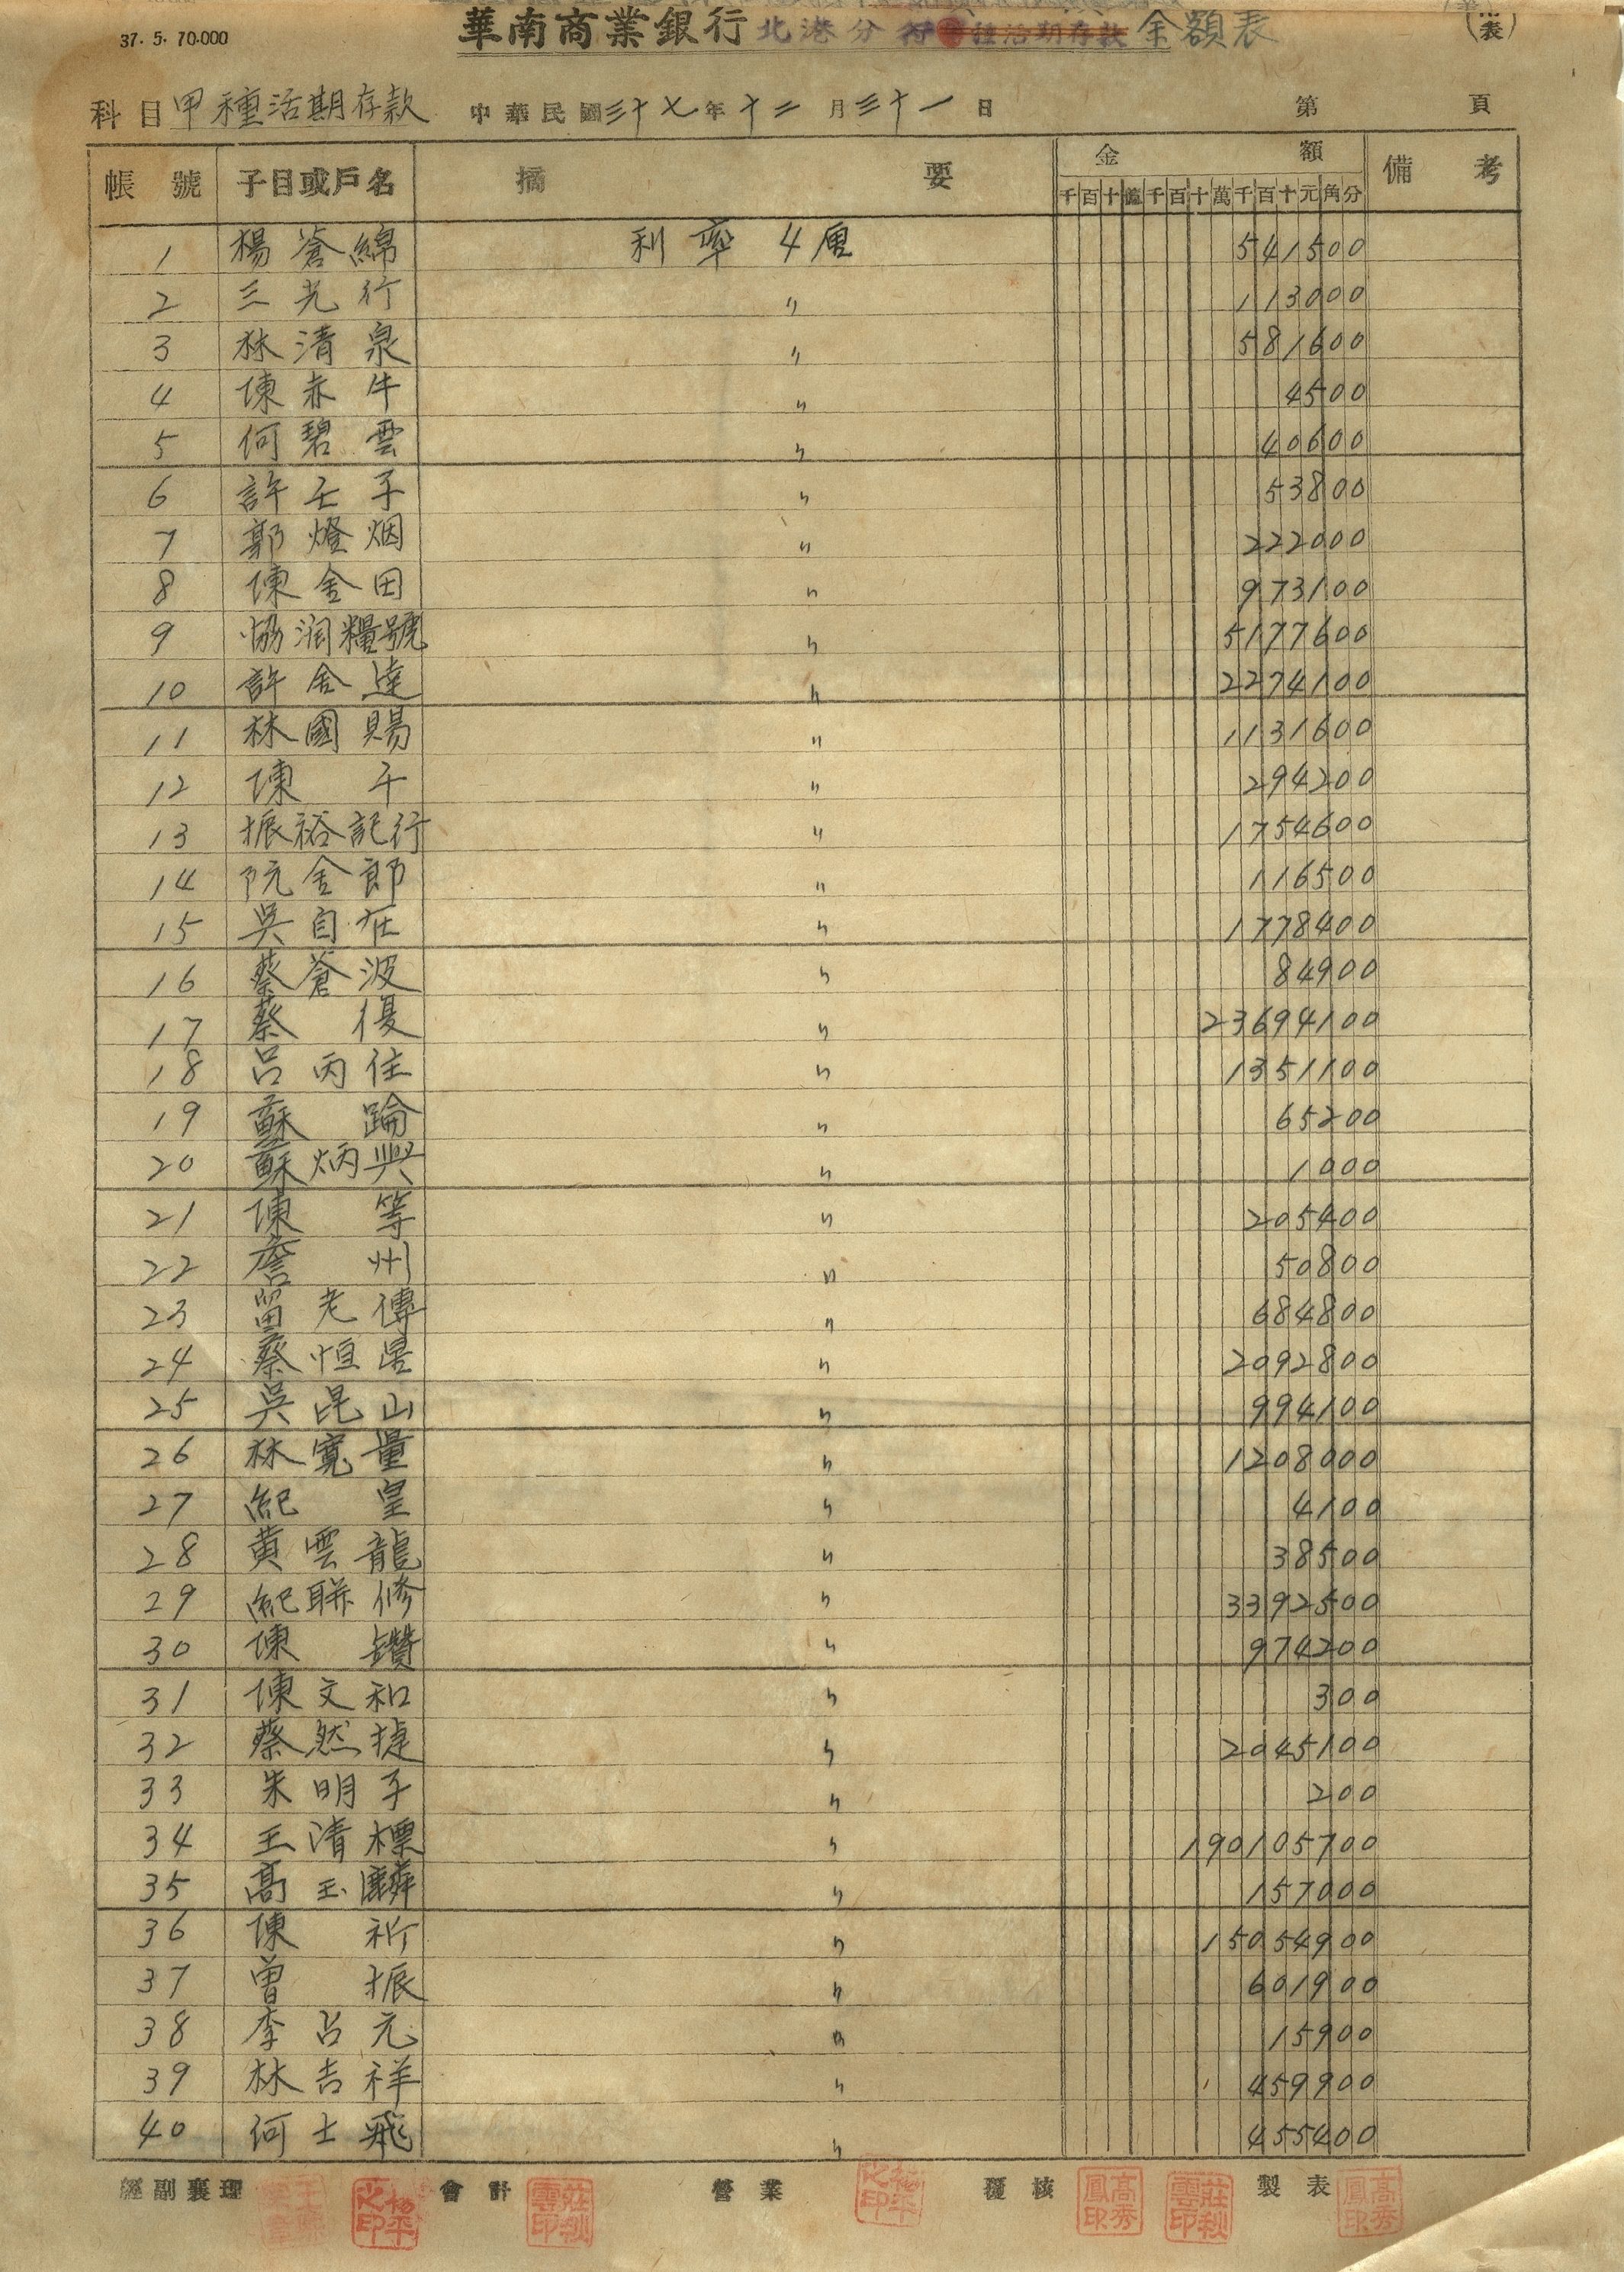 37. 5. 70.000
華南商業銀行 北港分行 種活期存款 金額表
表
科目 甲種活期存款 中華民國三十七年十二月三十一日 第 頁
帳號 子目或戶名 摘要 金額 備考
千百十億千百十萬千百十元角分
1 楊蒼綿 利率4厘 541500
2 三光行 〃 113000
3 林清泉 〃 581600
4 陳赤牛 〃 4500
5 何碧雲 〃 40600
6 許壬子 〃 53800
7 郭燈烟 〃 222000
8 陳金田 〃 973100
9 協潤糧號 〃 5177600
10 許金達 〃 2274100
11 林國賜 〃 1131600
12 陳 〃 294200
13 振裕記行 〃 1754600
14 阮金郎 〃 116500
15 吳自在 〃 1778400
16 蔡蒼波 〃 84900
17 蔡優 〃 23694100
18 呂丙住 〃 1351100
19 蘇踚 〃 65200
20 蘇炳興 〃 1000
21 陳等 〃 205400
22 詹州 〃 50800
23 留老傳 〃 684800
24 蔡恒 〃 2092800
25 吳昆山 〃 994100
26 林寬量 〃 1208000
27 紀皇 〃 4100
28 黃雲龍 〃 38500
29 紀聯修 〃 3392500
30 陳鑽 〃 974200
31 陳文和 〃 300
32 蔡然捷 〃 2045100
33 朱明子 〃 200
34 王清標 〃 190105700
35 高玉麟 〃 157000
36 陳祈 〃 15054900
37 曾振 〃 601900
38 李呂元 〃 15900
39 林吉祥 〃 459900
40 何士飛 〃 455400
經副襄理 楊平之印 會計 莊秋雲印 營業 楊平之印 覆核 高秀鳳印 莊秋雲印 製表 高秀鳳印